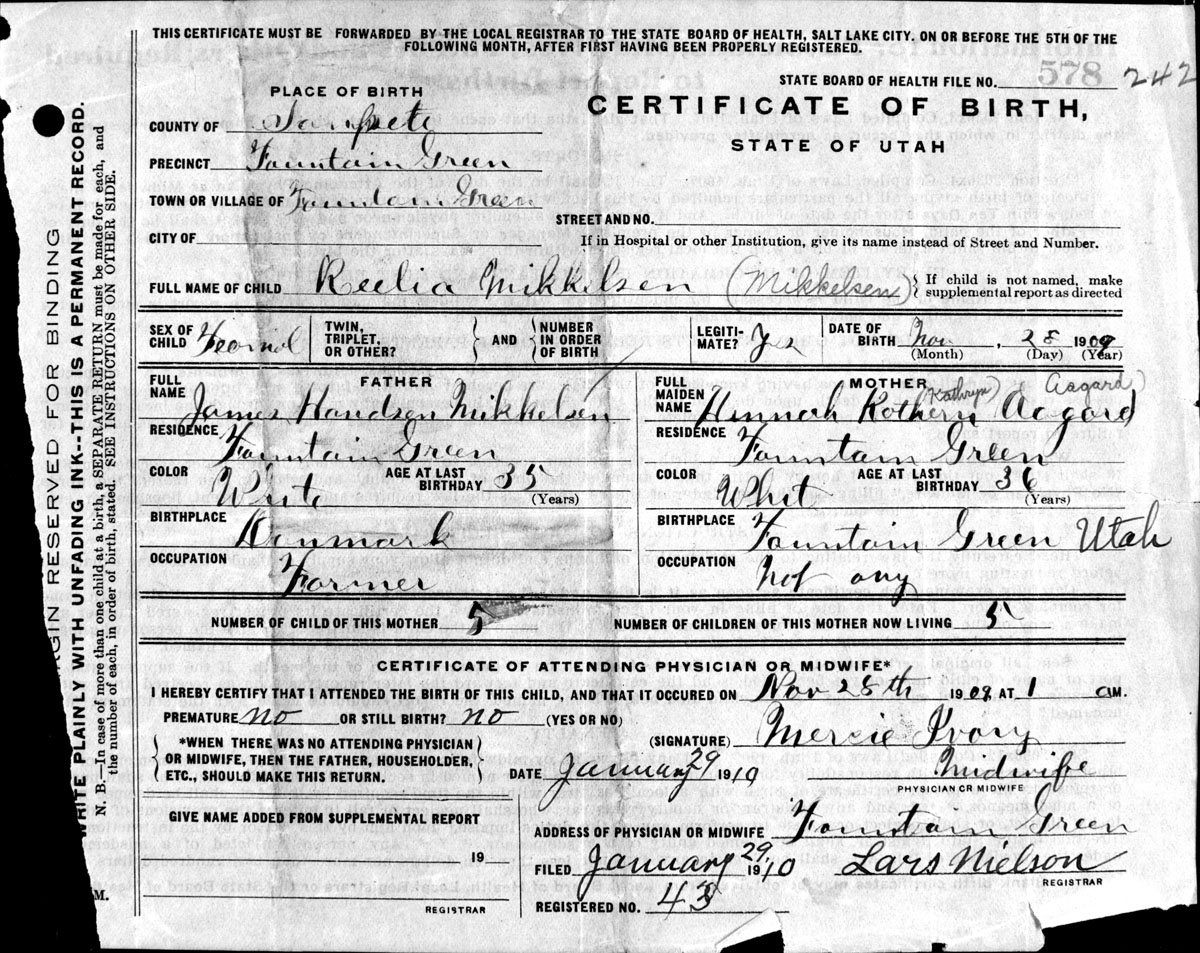 THIS CERTIFICATE MUST BE FORWARDED BY THE LOCAL REGISTRAR TO THE STATE BOARD OF HEALTH, SALT LAKE CITY, ON OR BEFORE THE 5TH OF THE
FOLLOWING MONTH, AFTER FIRST HAVING BEEN PROPERLY REGISTERED.
STATE BOARD OF HEALTH FILE NO. 578 242
PLACE OF BIRTH
CERTIFICATE OF BIRTH,
STATE OF UTAH
COUNTY OF Sanpete
PRECINCT Fountain Green
TOWN OR VILLAGE OF Fountain Green
STREET AND NO.
CITY OF
If in Hospital or other Institution, give its name instead of Street and Number.
FULL NAME OF CHILD Reelia Mikkelsen (Mikkelsen) If child is not named, make
supplemental report as directed
SEX OF CHILD TWIN, TRIPLET, OR OTHER? AND NUMBER IN ORDER OF BIRTH LEGITI-MATE? Yes DATE OF BIRTH Nov, 28 1909
(Month) (Day) (Year)
FATHER
FULL NAME James Handsen Mikkelsen
RESIDENCE Fountain Green
COLOR White AGE AT LAST BIRTHDAY 35
(Years)
BIRTHPLACE Denmark
OCCUPATION Farmer
MOTHER (Kathryn Aagard)
FULL MAIDEN NAME Hannah Kothern Aagard
RESIDENCE Fountain Green
COLOR Whit AGE AT LAST BIRTHDAY 36
(Years)
BIRTHPLACE Fountain Green Utah
OCCUPATION Not any
NUMBER OF CHILD OF THIS MOTHER 5 NUMBER OF CHILDREN OF THIS MOTHER NOW LIVING 5
CERTIFICATE OF ATTENDING PHYSICIAN OR MIDWIFE*
I HEREBY CERTIFY THAT I ATTENDED THE BIRTH OF THIS CHILD, AND THAT IT OCCURED ON Nov 28th 1909 AT 1 a M.
PREMATURE no OR STILL BIRTH? no (YES OR NO)
(SIGNATURE) Mercie Ivory
*WHEN THERE WAS NO ATTENDING PHYSICIAN
OR MIDWIFE, THEN THE FATHER, HOUSEHOLDER,
ETC., SHOULD MAKE THIS RETURN.
DATE January 29 1910 Midwife
PHYSICIAN OR MIDWIFE
GIVE NAME ADDED FROM SUPPLEMENTAL REPORT
19
REGISTRAR
ADDRESS OF PHYSICIAN OR MIDWIFE Fountain Green
FILED January 29, 1910 Lars Nielson
REGISTRAR
REGISTERED NO. 43
GIN RESERVED FOR BINDING
WRITE PLAINLY WITH UNFADING INK--THIS IS A PERMANENT RECORD.
N. B.—In case of more than one child at a birth, a SEPARATE RETURN must be made for each, and
the number of each, in order of birth, stated. SEE INSTRUCTIONS ON OTHER SIDE.
M.